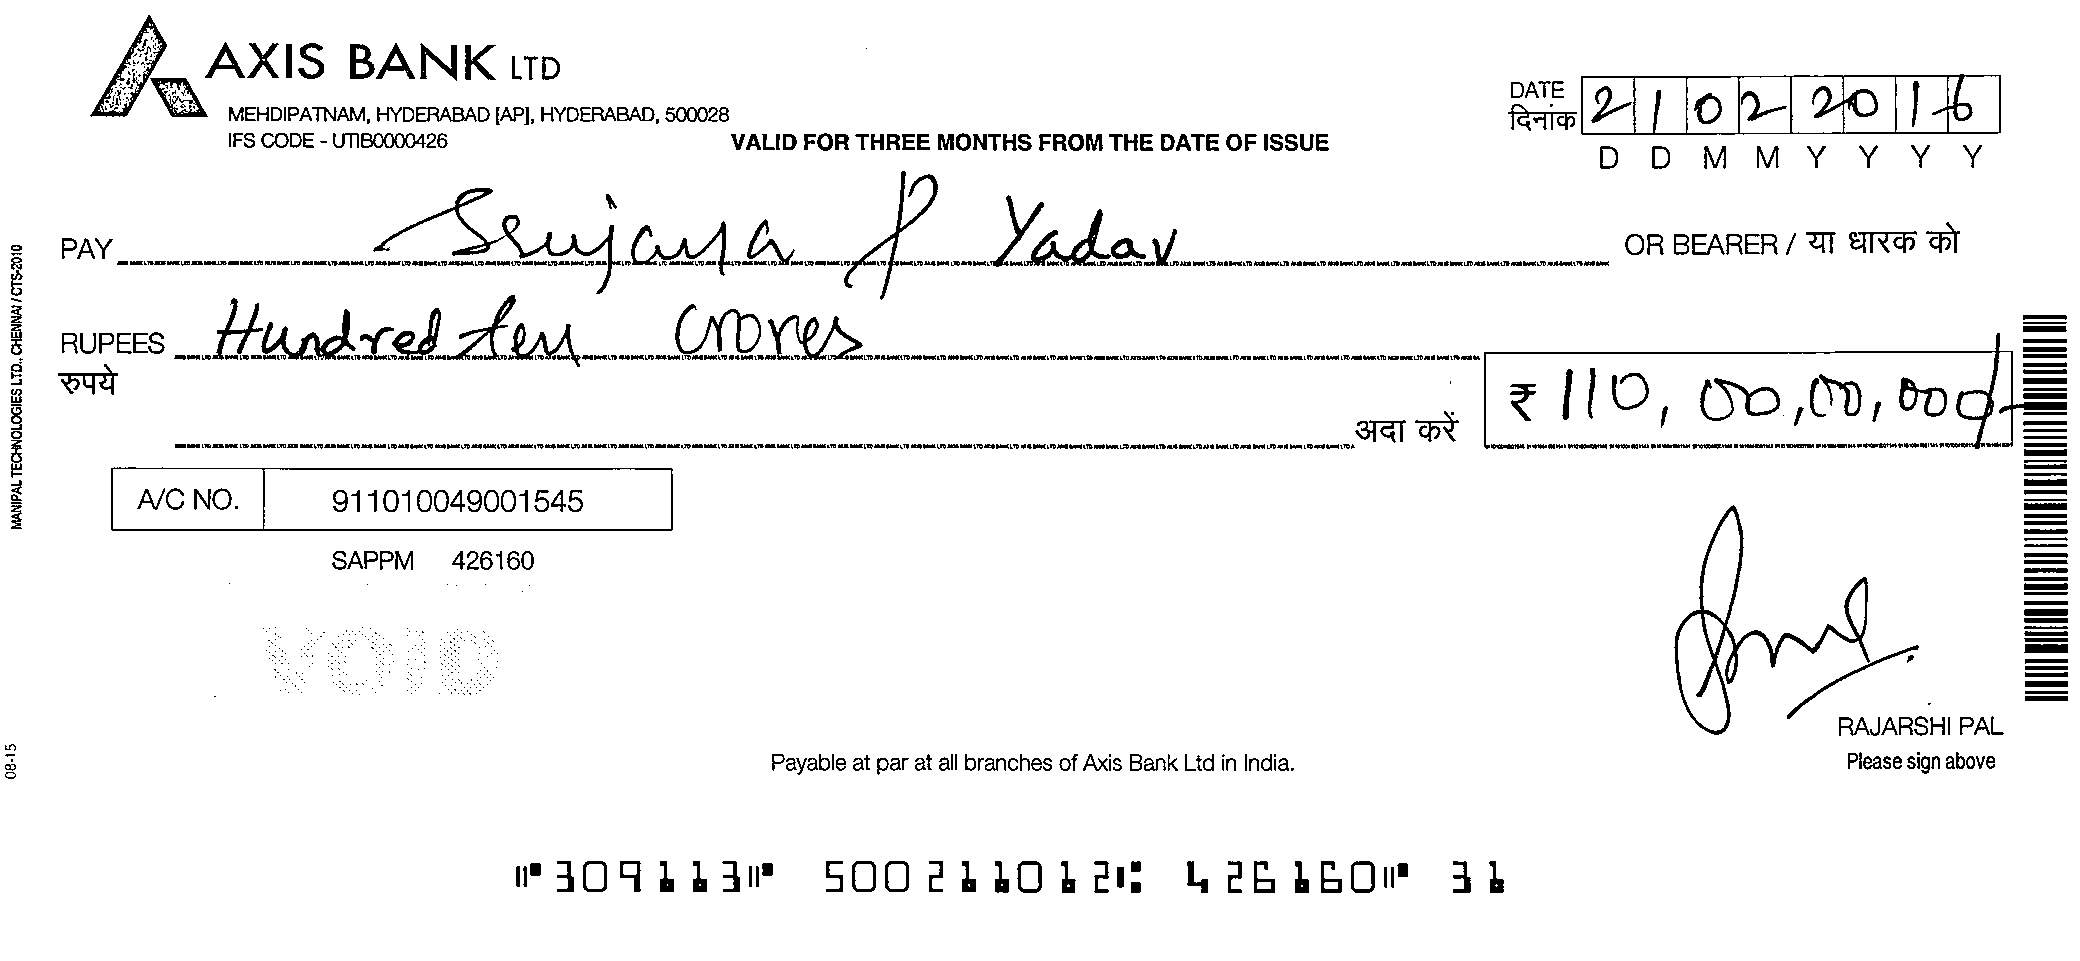 AXIS BANK LTD
MEHDIPATNAM, HYDERABAD [AP], HYDERABAD, 500028
IFS CODE - UTIB0000426
VALID FOR THREE MONTHS FROM THE DATE OF ISSUE
DATE
दिनांक
21022016
D D M M Y Y Y Y
PAY Srujaya P Yadav OR BEARER / या धारक को
RUPEES Hundred ten crores
रुपये
अदा करें ₹ 110,00,00,000/-
A/C NO. 911010049001545
SAPPM 426160
VOID
RAJARSHI PAL
Please sign above
Payable at par at all branches of Axis Bank Ltd in India.
⑈309113⑈ 500211012⑆ 426160⑈ 31
MANIPAL TECHNOLOGIES LTD., CHENNAI / CTS-2010
08-15